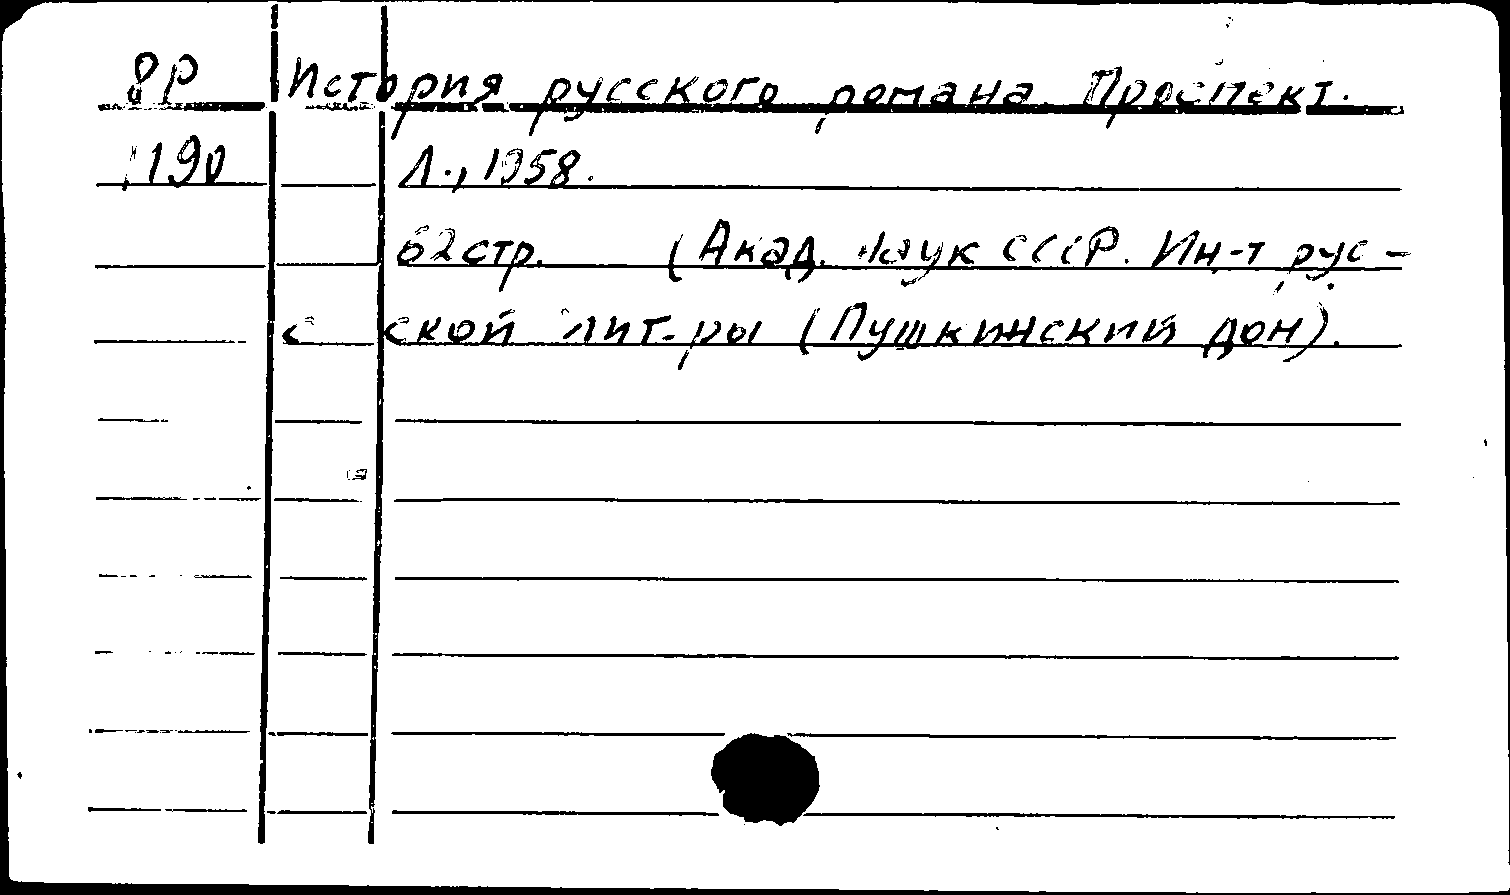 8Р История русского романа Проспект.
1190 Л., 1958.
62 стр. (Акад. наук СССР. Ин-т рус-
с ской лит-ры (Пушкинский дом).